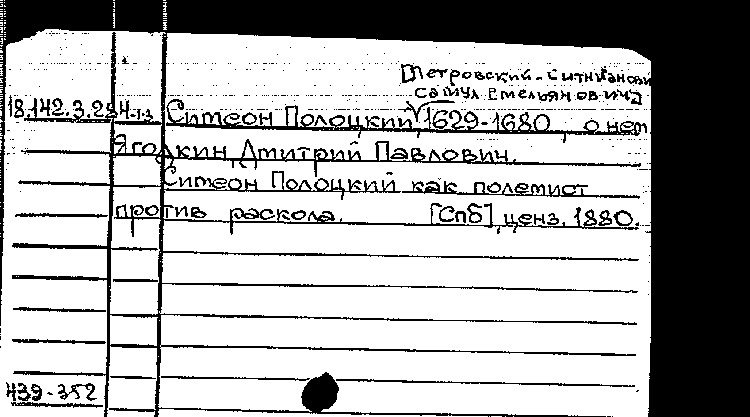 [Петровский-Ситнианович
Самуил Емельянович]
18.142.3.284-1-3 Симеон Полоцкий, 1629-1680, о нем
Ягодкин, Дмитрий Павлович.
Симеон Полоцкий как полемист
против раскола. [Спб], ценз. 1880.
439-352